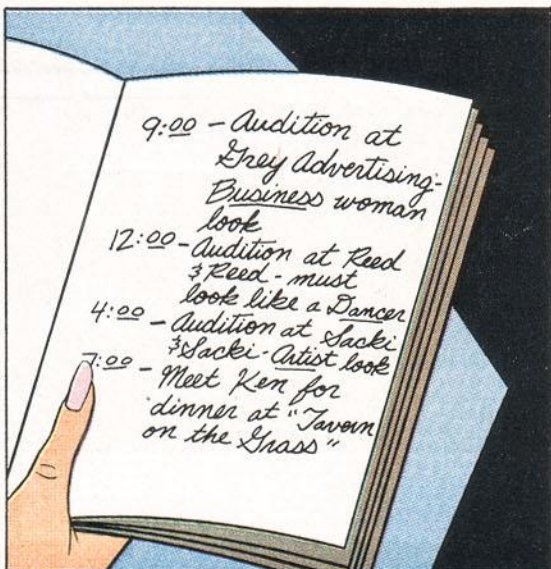 9:00 - Audition at
Grey Advertising-
Business woman
look
12:00 - Audition at Reed
& Reed - must
look like a Dancer
4:00 - Audition at Sacki
& Sacki - Artist look
7:00 - Meet Ken for
dinner at "Tavern
on the Grass"